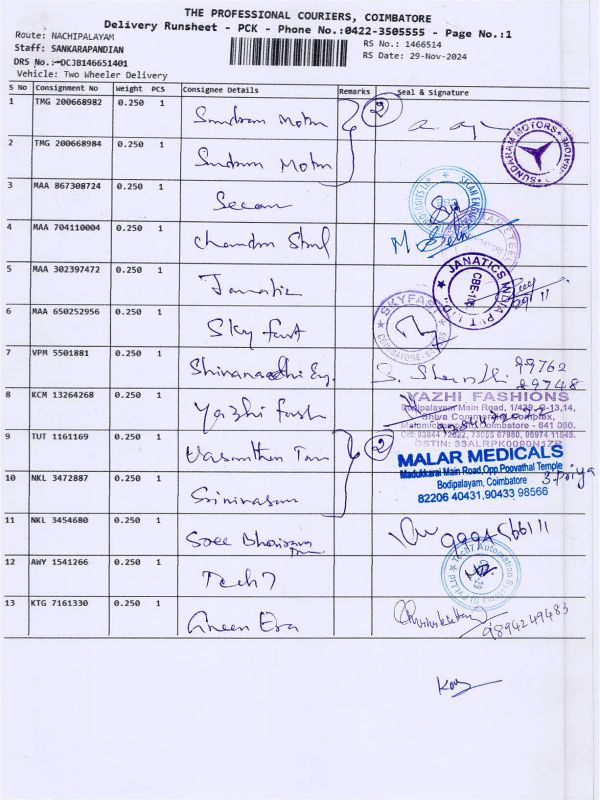 THE PROFESSIONAL COURIERS, COIMBATORE
Delivery Runsheet - PCK - Phone No.:0422-3505555 - Page No.:1
Route: NACHIPALAYAM
RS No.: 1466514
Staff: SANKARAPANDIAN
RS Date: 29-Nov-2024
DRS No.:-DCJB146651401
Vehicle: Two Wheeler Delivery
S No Consignment No Weight PCS Consignee Details Remarks Seal & Signature
1 TMG 200668982 0.250 1 Sundram Motor 2
SUNDARAM MOTORS
2 TMG 200668984 0.250 1 Sundram Motor
3 MAA 867308724 0.250 1 Secan
4 MAA 704110004 0.250 1 Chandra Steel
5 MAA 302397472 0.250 1 Janatic
JANATICS INDIA PVT LTD
CBE-104
29/11
6 MAA 650252956 0.250 1 Sky fast
SKYFAST
7 VPM 5501881 0.250 1
99762
89748
8 KCM 13264268 0.250 1 Yazhi fash
YAZHI FASHIONS
Bodipalayam Main Road,
Shiva Commercial Complex,
Coimbatore - 641 050,
GSTIN: 33ALRPK0090N1ZR
9 TUT 1161169 0.250 1 Vasanthan 2
MALAR MEDICALS
Madukkarai Main Road,Opp.Poovathal Temple
Bodipalayam, Coimbatore
82206 40431,90433 98566
S.priya
10 NKL 3472887 0.250 1 Srinivasan
11 NKL 3454680 0.250 1 Sree
12 AWY 1541266 0.250 1 Tech 7
Tech7 Automation
13 KTG 7161330 0.250 1 Green Era
9894249483